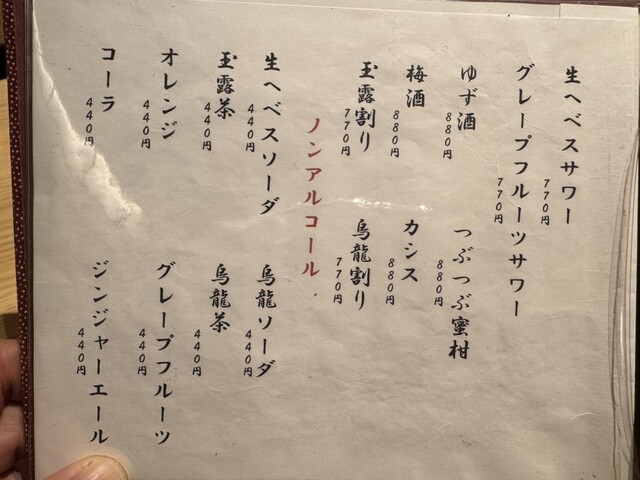 生ヘベスサワー
770円
グレープフルーツサワー
770円
ゆず酒
880円
つぶつぶ蜜柑
880円
梅酒
880円
カシス
880円
玉露割り
770円
烏龍割り
770円
ノンアルコール
生ヘベスソーダ
440円
烏龍ソーダ
440円
玉露茶
440円
烏龍茶
440円
オレンジ
440円
グレープフルーツ
440円
コーラ
440円
ジンジャーエール
440円